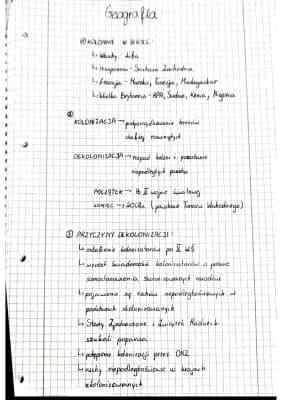 Geografia
① KOLONIE W AFRYCE:
↳ Włochy - Libia
↳ Hiszpania - Sahara Zachodnia
↳ Francja - Maroko, Tunezja, Madagaskar
↳ Wielka Brytania - RPA, Sudan, Kenia, Nigeria
②
KOLONIZACJA → podporządkowanie terenów
słabiej rozwiniętych
DEKOLONIZACJA → rozpad kolonii i powstanie
niepodległych państw
POCZĄTEK → Po II wojnie światowej
KONIEC → 2002r. (powstanie Timoru Wschodniego)
③ PRZYCZYNY DEKOLONIZACJI:
↳ osłabienie kolonizatorów po II WŚ
↳ wzrost świadomości kolonizatorów o prawie
samostanowienia skolonizowanych narodów
↳ pojawienie się ruchów niepodległościowych w
państwach skolonizowanych
↳ Stany Zjednoczone i Związek Radziecki
szukali poparcia
↳ potępienie kolonizacji przez ONZ
↳ ruchy niepodległościowe w krajach
skolonizowanych